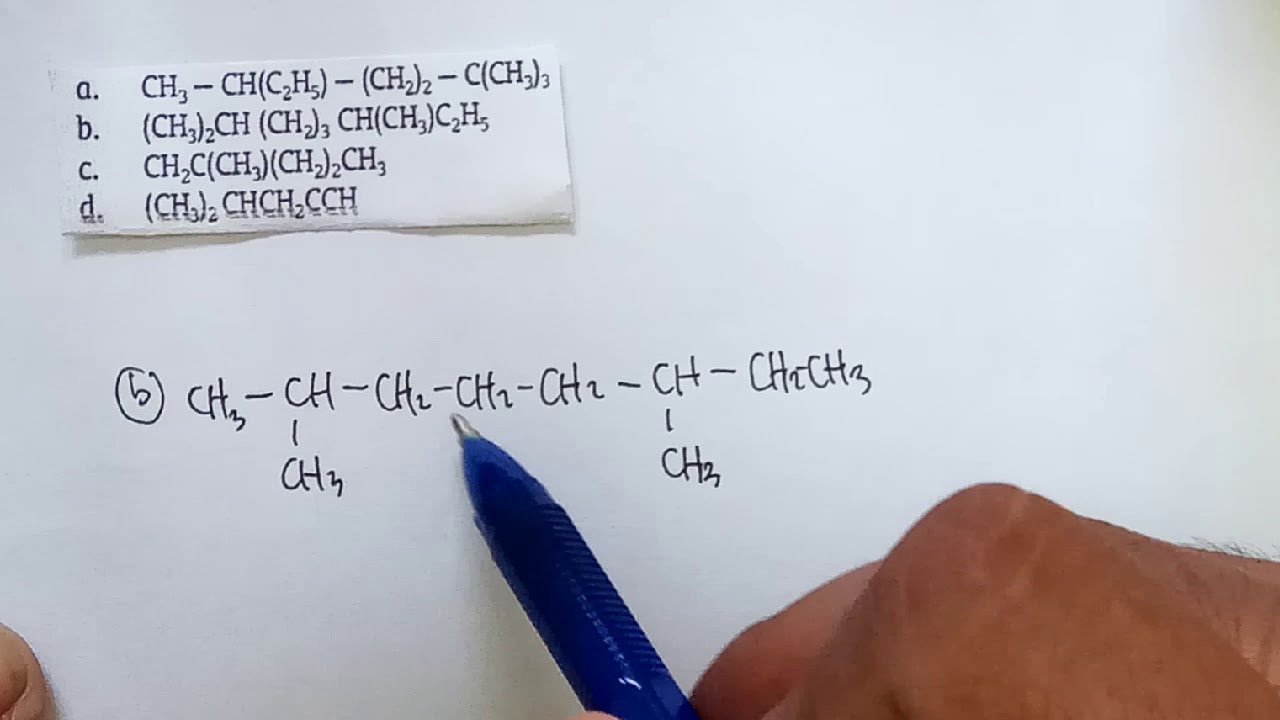 a. CH₃ – CH(C₂H₅) – (CH₂)₂ – C(CH₃)₃
b. (CH₃)₂CH (CH₂)₃ CH(CH₃)C₂H₅
c. CH₂C(CH₃)(CH₂)₂CH₃
d. (CH₃)₂ CHCH₂CCH
(b) CH₃ – CH – CH₂ – CH₂ – CH₂ – CH – CH₂CH₃
CH₃ CH₃